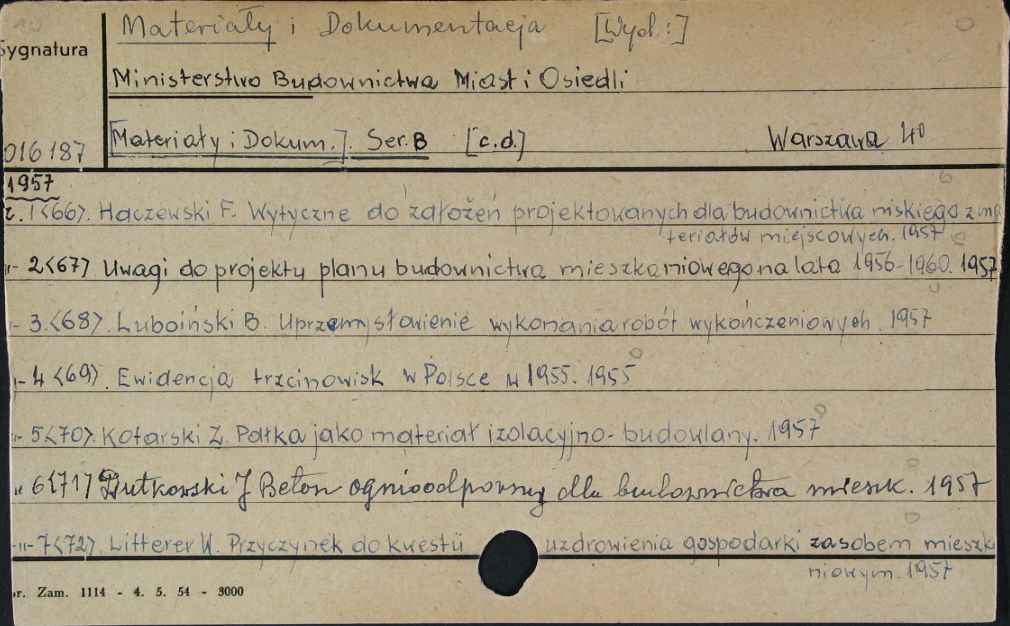 Materiały i Dokumentacja [Wyd.:]
Sygnatura
Ministerstwo Budownictwa Miast i Osiedli
016187
[Materiały i Dokum.]. Ser. B [c.d.] Warszawa 40
1957
z. 1<66>. Haczewski F. Wytyczne do założeń projektowanych dla budownictwa niskiego z ma
teriałów miejscowych. 1957
-"- 2<67> Uwagi do projektu planu budownictwa mieszkaniowego na lata 1956-1960. 1957
-"- 3.<68>. Luboiński B. Uprzemysłowienie wykonania robót wykończeniowych. 1957
-"- 4<69>. Ewidencja trzcinowisk w Polsce w 1955. 1955
-"- 5<70>. Kotarski Z. Pałka jako materiał izolacyjno-budowlany. 1957
-"- 6<71> Dutkowski J Beton ognioodporny dla budownictwa mieszk. 1957
-"- 7<72>. Litterer W. Przyczynek do kwestii uzdrowienia gospodarki zasobem mieszka
niowym. 1957
r. Zam. 1114 - 4. 5. 54 - 3000